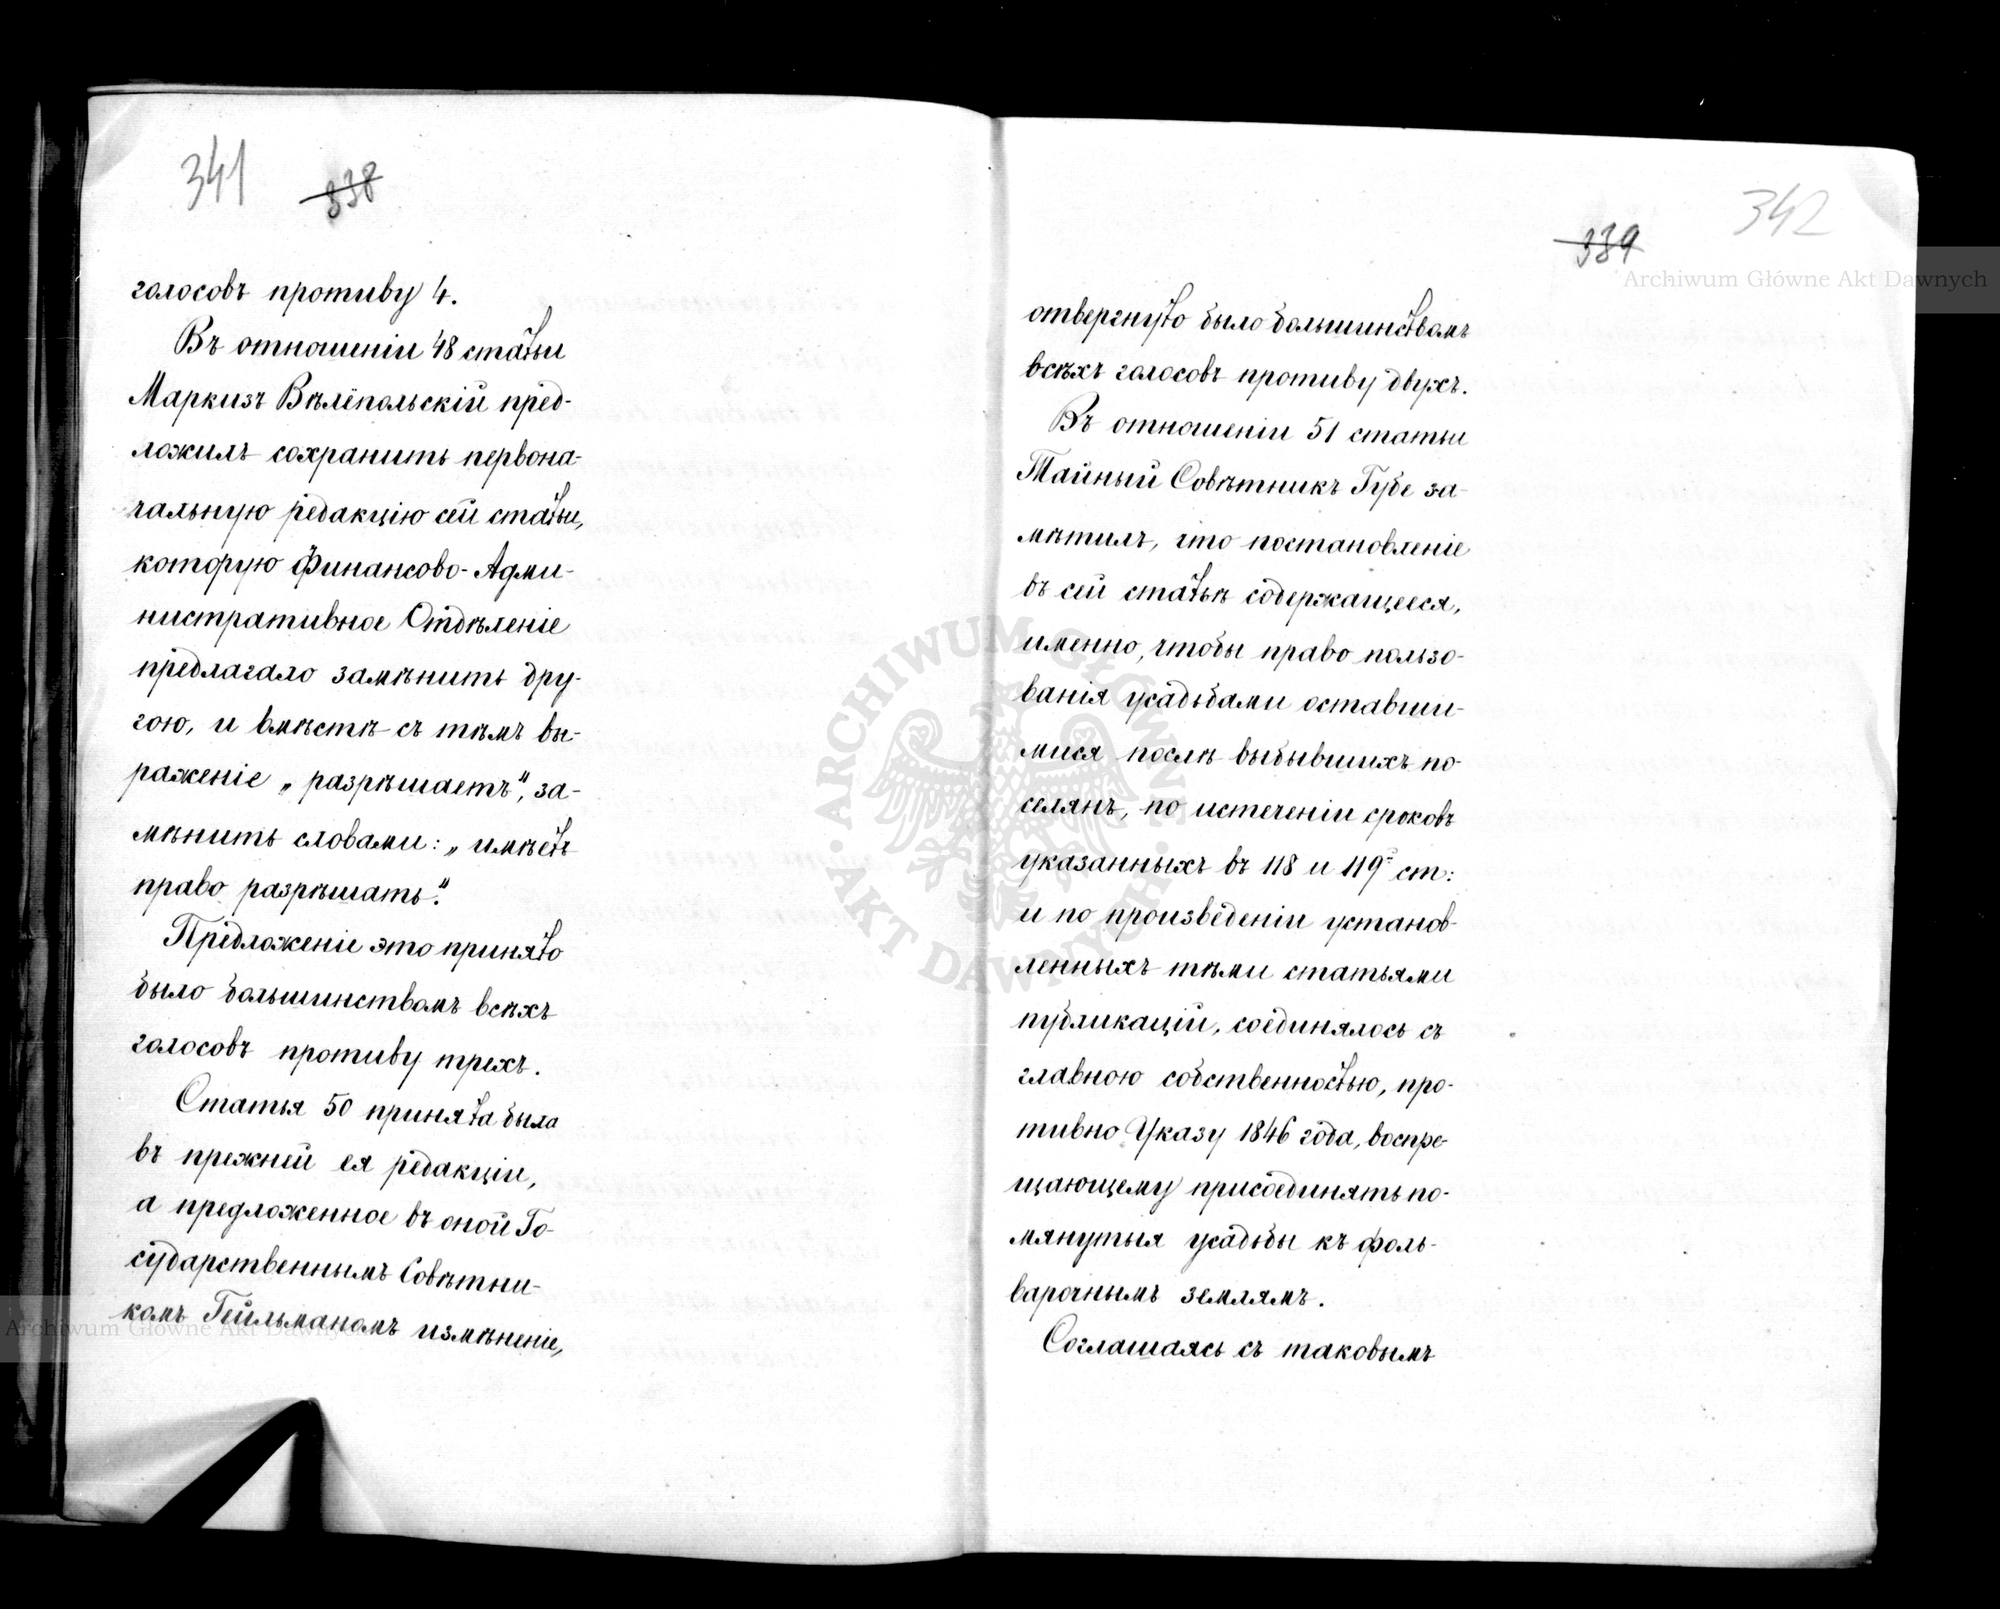 341
338
голосовъ противу 4.
Въ отношеніи 48 статьи
Маркизъ Вѣлёпольскій пред-
ложилъ сохранить первона-
чальную редакцію сей статьи,
которую Финансово-Адми-
нистративное Отдѣленіе
предлагало замѣнить дру-
гою, и вмѣстѣ съ тѣмъ вы-
раженіе „разрѣшаетъ", за-
мѣнить словами: „имѣетъ
право разрѣшать."
Предложеніе это принято
было большинствомъ всѣхъ
голосовъ противу трехъ.
Статья 50 принята была
въ прежней ея редакціи,
а предложенное въ оной Го-
сударственнымъ Совѣтни-
комъ Гейльманомъ измѣненіе,
342
339
отвергнуто было большинствомъ
всѣхъ голосовъ противу двухъ.
Въ отношеніи 51 статьи
Тайный Совѣтникъ Губе за-
мѣтилъ, что постановленіе
въ сей статьѣ содержащееся,
именно, чтобы право пользо-
ванія усадьбами оставши-
мися послѣ выбывшихъ по-
селянъ, по истеченіи сроковъ
указанныхъ въ 118 и 119 ст:
и по произведеніи установ-
ленныхъ тѣми статьями
публикацій, соединялось съ
главною собственностью, про-
тивно Указу 1846 года, воспре-
щающему присоединять по-
мянутыя усадьбы къ фоль-
варочнымъ землямъ.
Соглашаясь съ таковымъ
Archiwum Główne Akt Dawnych
ARCHIWUM GŁÓWNE AKT DAWNYCH
Archiwum Główne Akt Dawnych